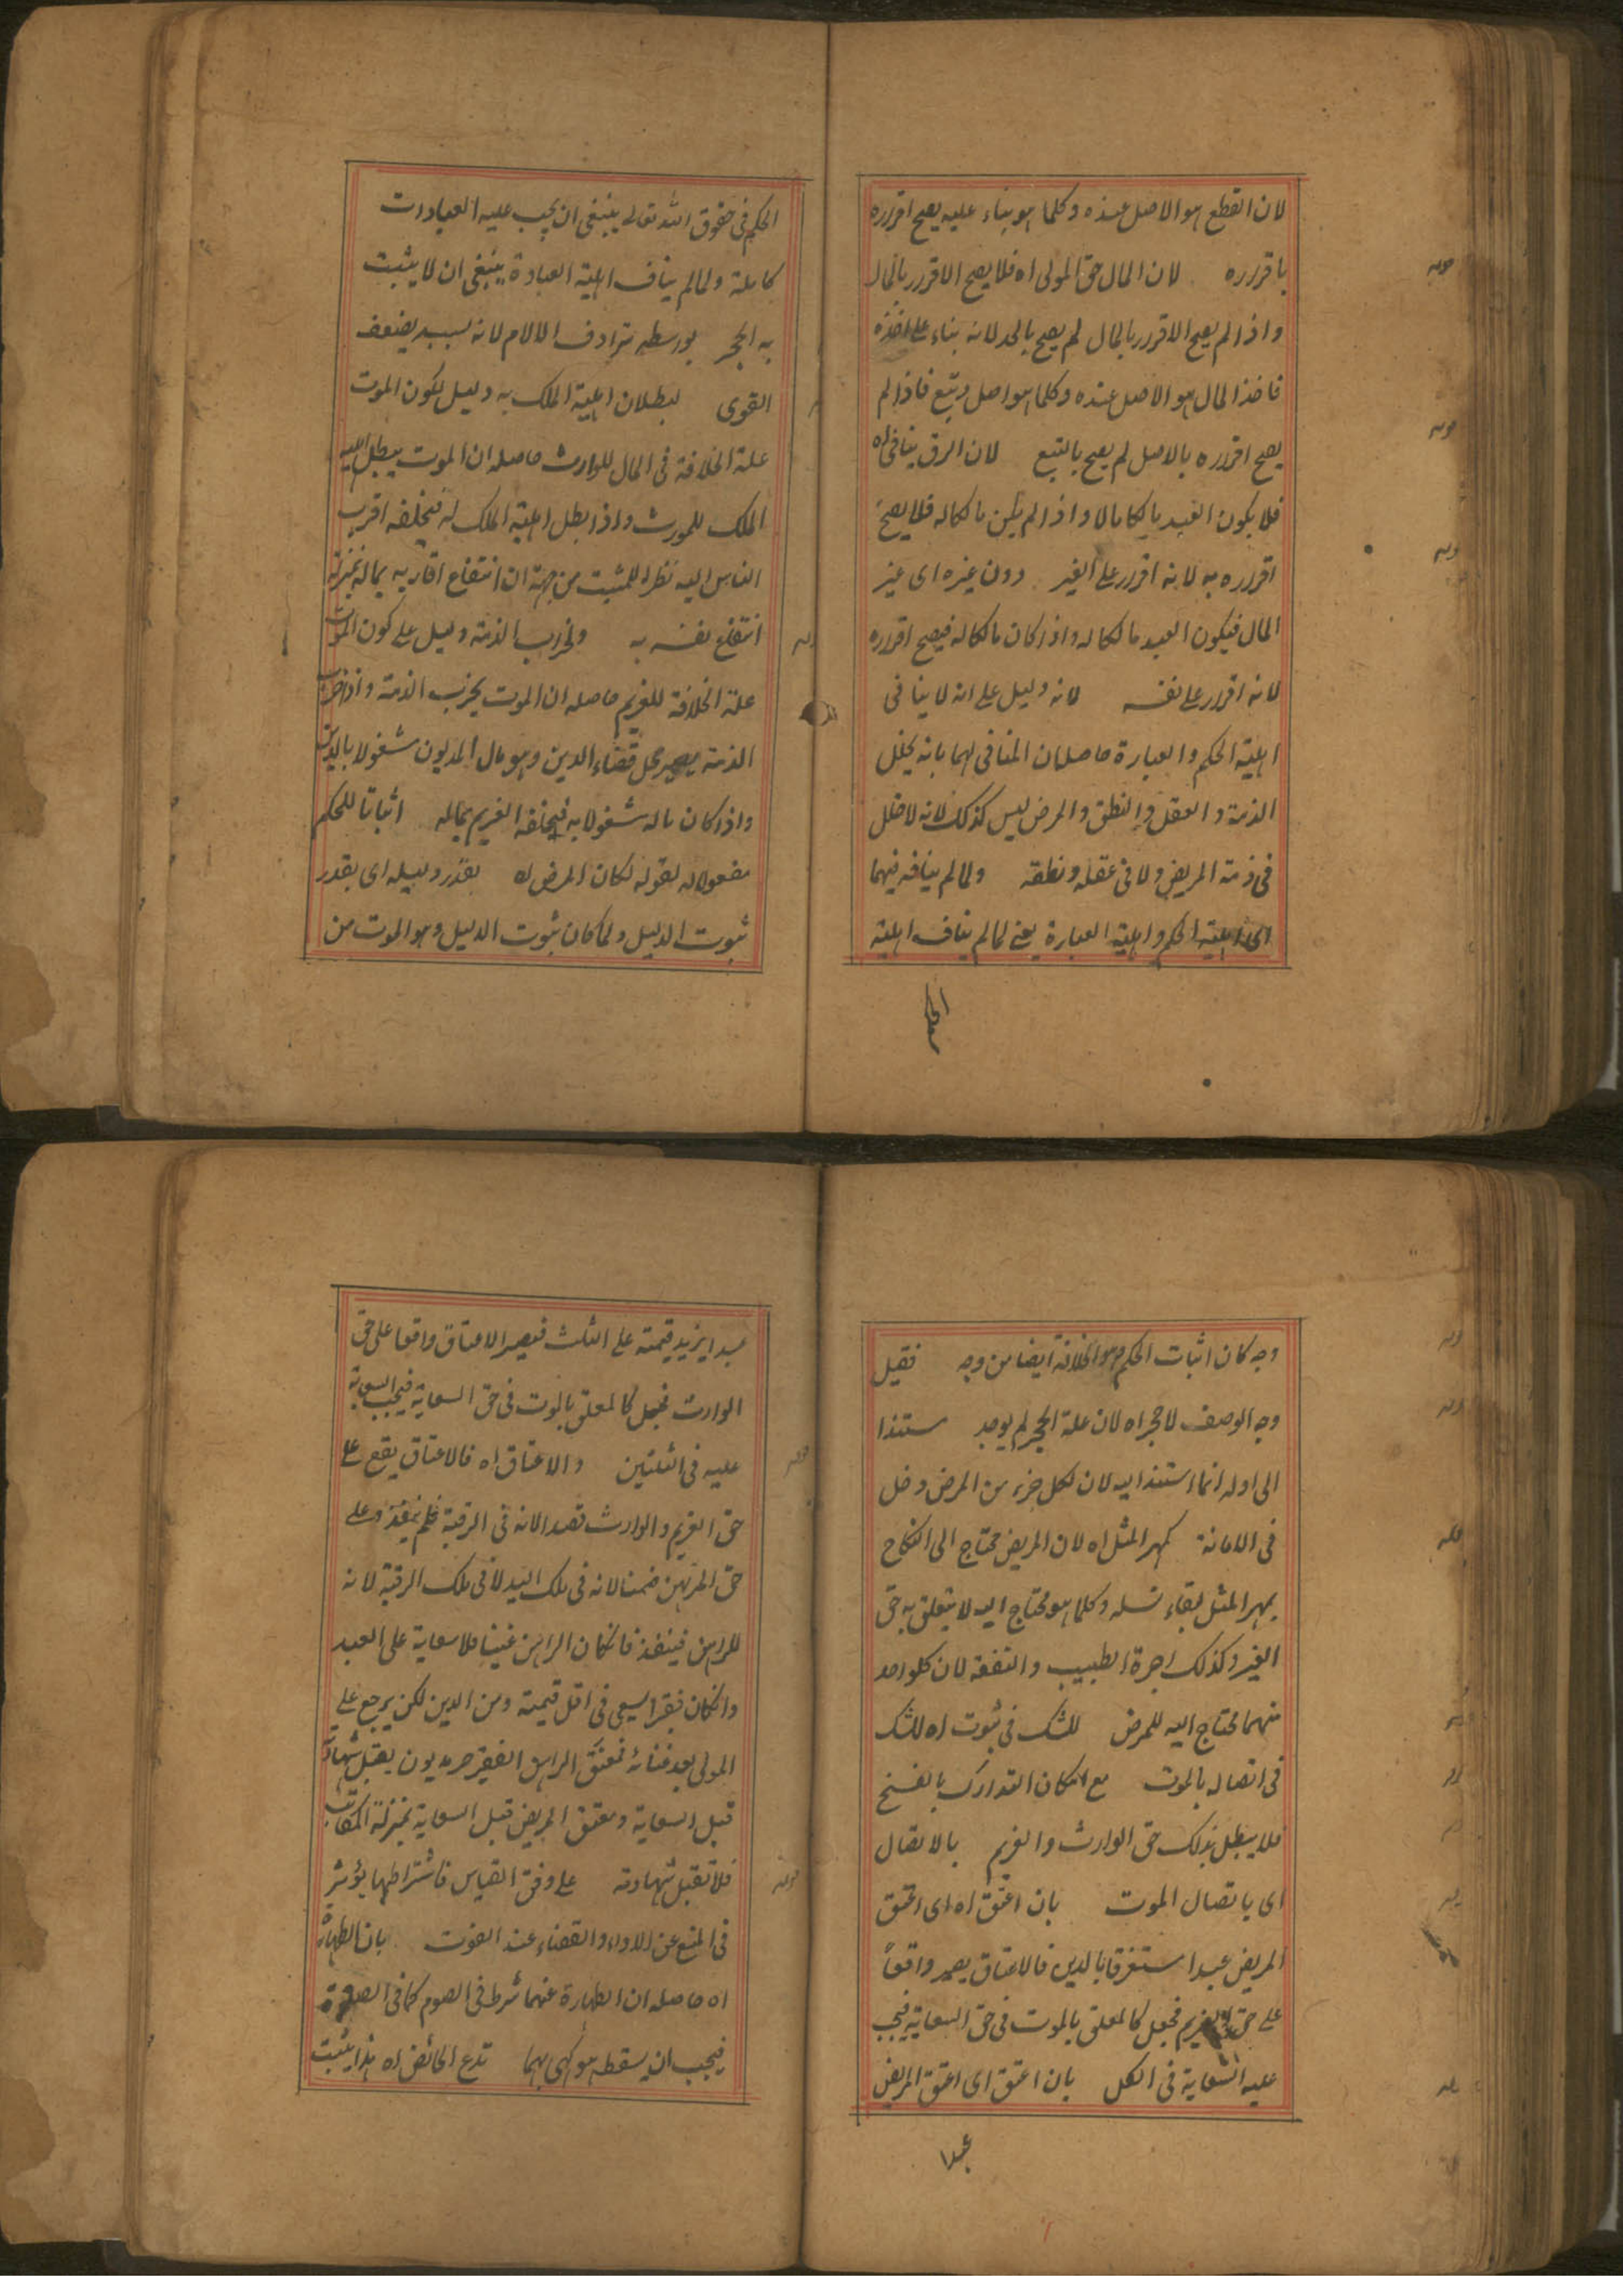 لان القطع هو الاصل عنده وكلما هو بناء عليه يصح اقراره
باقراره لان المال حق المولى اه فلا يصح الاقرار بالمال
واذا لم يصح الاقرار بالمال لم يصح بالحد لانه بناء على اخذه
فاخذ المال هو الاصل عنده وكلما هو اصل وتبع فاذا لم
يصح اقراره بالاصل لم يصح بالتبع لان الرق ينافى اه
فلا يكون العبد مالكا مالا واذا لم يكن مالكا له فلا يصح
اقراره به لانه اقرار على الغير دون غيره اى غير
المال فيكون العبد مالكا له واذا كان مالكا له فيصح اقراره
لانه اقرار على نفسه لانه دليل على انه لا ينافى
اهلية الحكم والعبارة حاصله ان المنافى لهما بانه يخلل
الذمة والعقل والنطق والمرض ليس كذلك لانه لا خلل
فى ذمة المريض ولا فى عقله ونطقه ولما لم ينافه فيهما
اى اهلية الحكم واهلية العبارة يعنى لما لم يناف اهلية
الحكم فى حقوق الله تعالى ينبغى ان يجب عليه العبادات
كاملة ولما لم يناف اهلية العبادة ينبغى ان لا يثبت
به الحجر بواسطة ترادف الالام لانه لسببه يضعف
القوى لبطلان اهلية الملك به دليل لكون الموت
علة الخلافة فى المال للوارث حاصله ان الموت يبطل اهلية
الملك للمورث واذا بطل اهلية الملك له فيخلفه اقرب
الناس اليه نظرا للميت من جهة ان انتفاع اقاربه بماله بمنزلة
انتفاع نفسه به ولخراب الذمة دليل على كون الموت
علة الخلافة للغريم حاصله ان الموت يخرب الذمة واذا خرب
الذمة يصير محل قضاء الدين وهو مال المديون مشغولا بالدين
واذا كان ماله مشغولا به فيخلفه الغريم بماله اثباتا للحكم
مفعول له لقوله لكان المرض اه بقدر دليله اى بقدر
ثبوت الدليل ولما كان ثبوت الدليل وهو الموت من
وجه كان اثبات الحكم وهو الخلافة ايضا من وجه فقيل
وجه الوصف لا حجر اه لان علة الحجر لم يوجد مستندا
الى اوله انما استند اليه لان لكل جزء من المرض دخل
فى الاماتة كمهر المثل اه لان المريض محتاج الى النكاح
بمهر المثل لبقاء نسله وكلما هو محتاج اليه لا يتعلق به حق
الغير وكذلك اجرة الطبيب والنفقة لان كلواحد
منهما محتاج اليه للمرض للشك فى ثبوت اه للشك
فى اتصاله بالموت مع امكان التدارك بالفسخ
فلا يبطل بذلك حق الوارث والغريم بالاتصال
اى باتصال الموت بان اعتق اه اى اعتق
المريض عبدا مستغرقا بالدين فالاعتاق يصير واقعا
على حق الغريم فجعل كالمعلق بالموت فى حق السعاية فيجب
عليه السعاية فى الكل بان اعتق اى اعتق المريض
عبدا
عبدا يزيد قيمته على الثلث فيصير الاعتاق واقعا على حق
الوارث فجعل كالمعلق بالموت فى حق السعاية فيجب السعاية
عليه فى الثلثين والاعتاق اه فالاعتاق يقع على
حق الغريم والوارث قصدا لانه فى الرقبة فلم ينفذ وعلى
حق المرتهن ضمنا لانه فى ملك اليد لا فى ملك الرقبة لانه
للراهن فينفذ فانكان الراهن غنيا فلا سعاية على العبد
وانكان فقيرا يسعى فى اقل قيمته ومن الدين لكن يرجع على
المولى بعد غنائه فمعتق الراهن الفقير حر مديون يقبل شهادته
قبل السعاية ومعتق المريض قبل السعاية بمنزلة المكاتب
فلا تقبل شهادته على وفق القياس فاشتراطها يؤثر
فى المنع عن الاداء والقضاء عند الفوت بان الطهارة
اه حاصله ان الطهارة عنهما شرط فى الصوم كما فى الصلوة
فيجب ان يسقط هو كهى بهما تدع الحائض اه هذا يثبت